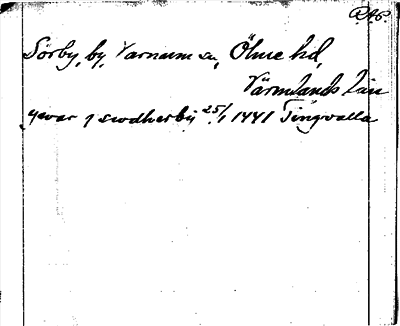 RAp.
Sörby, by, Varnum sn, Ölme hd,
Värmlands län
ywar j swdherby 25/1 1441 Tingvalla